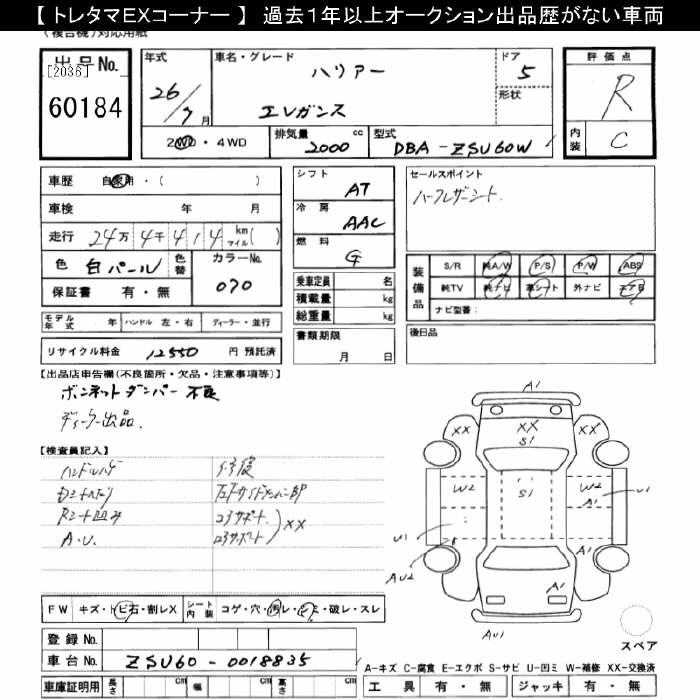 【 トレタマEXコーナー 】 過去1年以上オークション出品歴がない車両
(複合機)対応用紙
出品No.
[2036]
60184
年式
26/7月
車名・グレード
ハリアー
エレガンス
ドア
5
形状
評価点
R
内装
C
2WD・4WD
排気量 cc
2000
型式
DBA-ZSU60W
車歴 自家用・( )
車検 年 月
走行 24万 4千 4 1 4 km マイル( )
色 白パール 色替
カラーNo. 070
保証書 有・無
モデル年式 年 ハンドル 左・右 ディーラー・並行
リサイクル料金 12550 円 預託済
シフト
AT
冷房
AAC
燃料
G
乗車定員 名
積載量 kg
総重量 kg
書類期限
月 日
セールスポイント
ハーフレザーシート
装備品
S/R 純A/W P/S P/W ABS
純TV 純ナビ 革シート 外ナビ エアB
ナビ型番:
後日品
【出品店申告欄(不良箇所・欠品・注意事項等)】
ボンネットダンパー不良
ディーラー出品.
【検査員記入】
A・U.
XX
A1
XX
XX
S1
XX
W2
S1
W2
A1
U1
U1
AU2
A1
A1
AU1
スペア
FW キズ・トビ石・割レX
シート内装 コゲ・穴・汚レ・シミ・破レ・スレ
登録No.
車台No. ZSU60-0018835
車庫証明用 長さ cm 幅 cm 高さ cm
A-キズ C-腐食 E-エクボ S-サビ U-凹ミ W-補修 XX-交換済
工具 有・無 ジャッキ 有・無